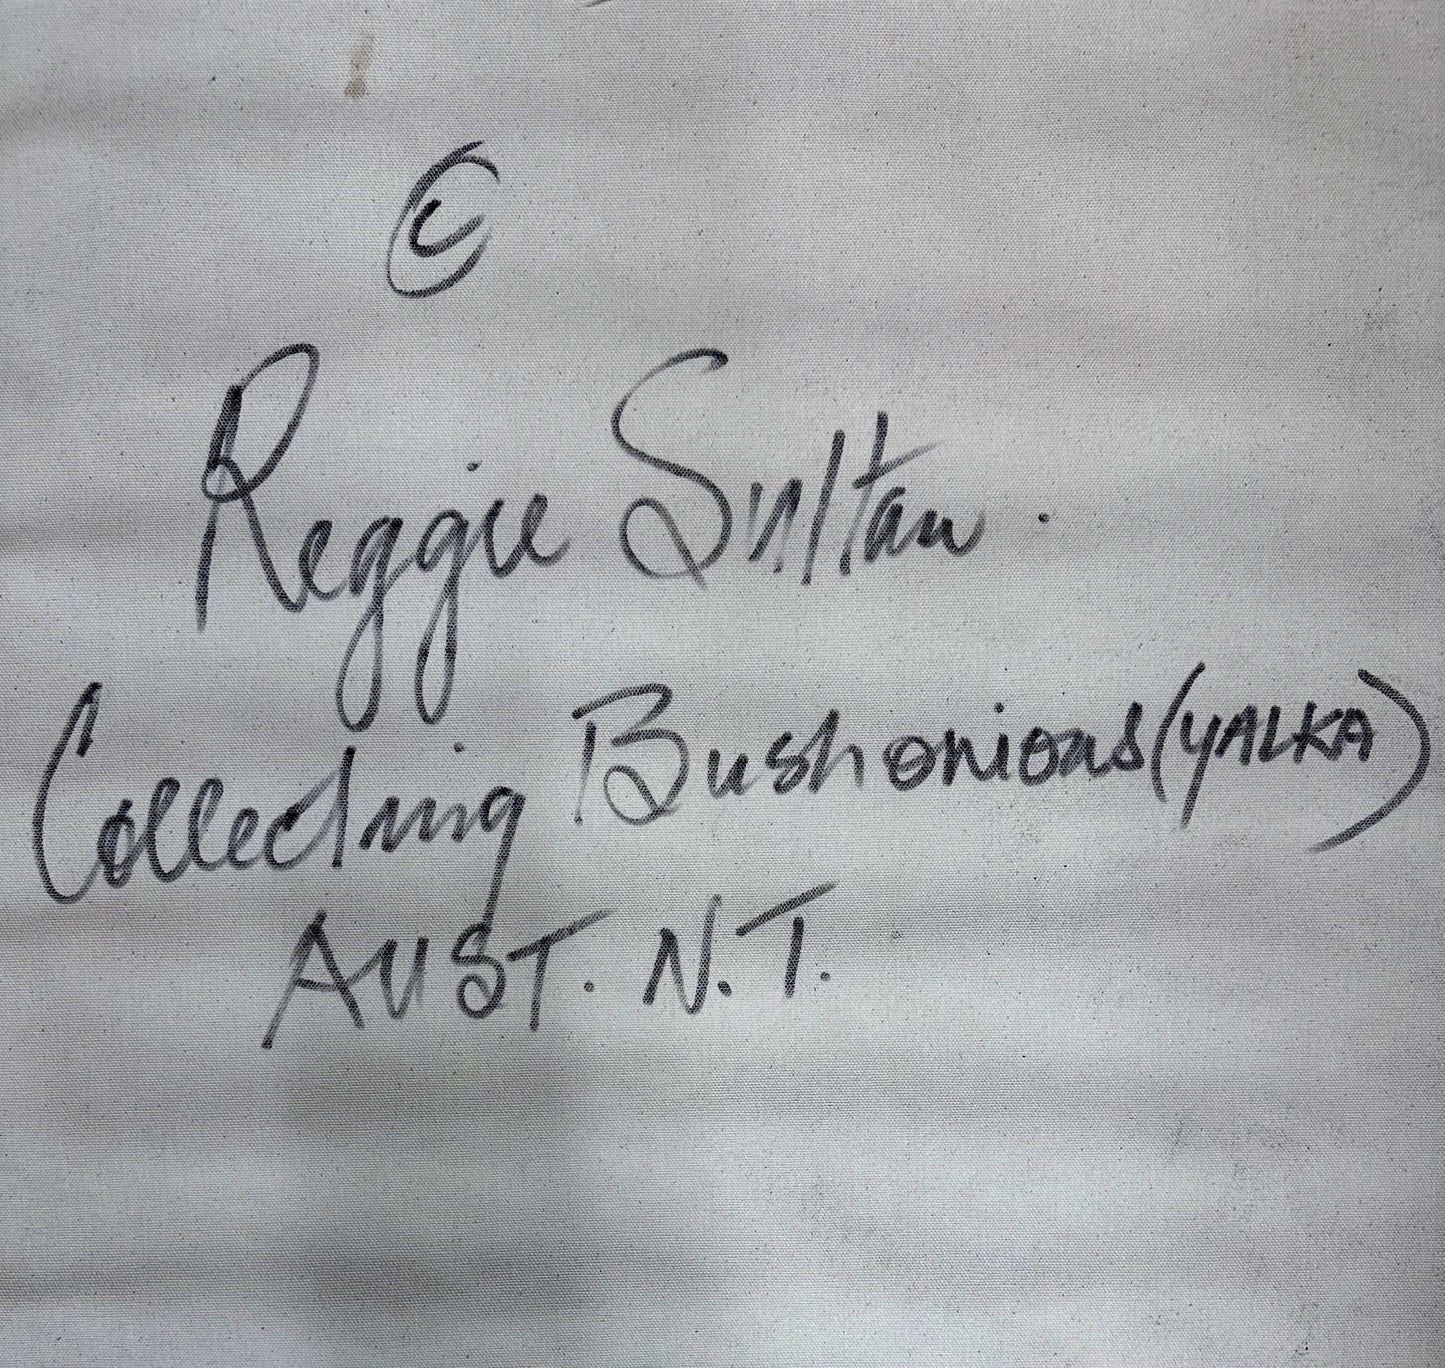 ©
Reggie Sultan.
Collecting Bushonions (YALKA)
AUST. N.T.